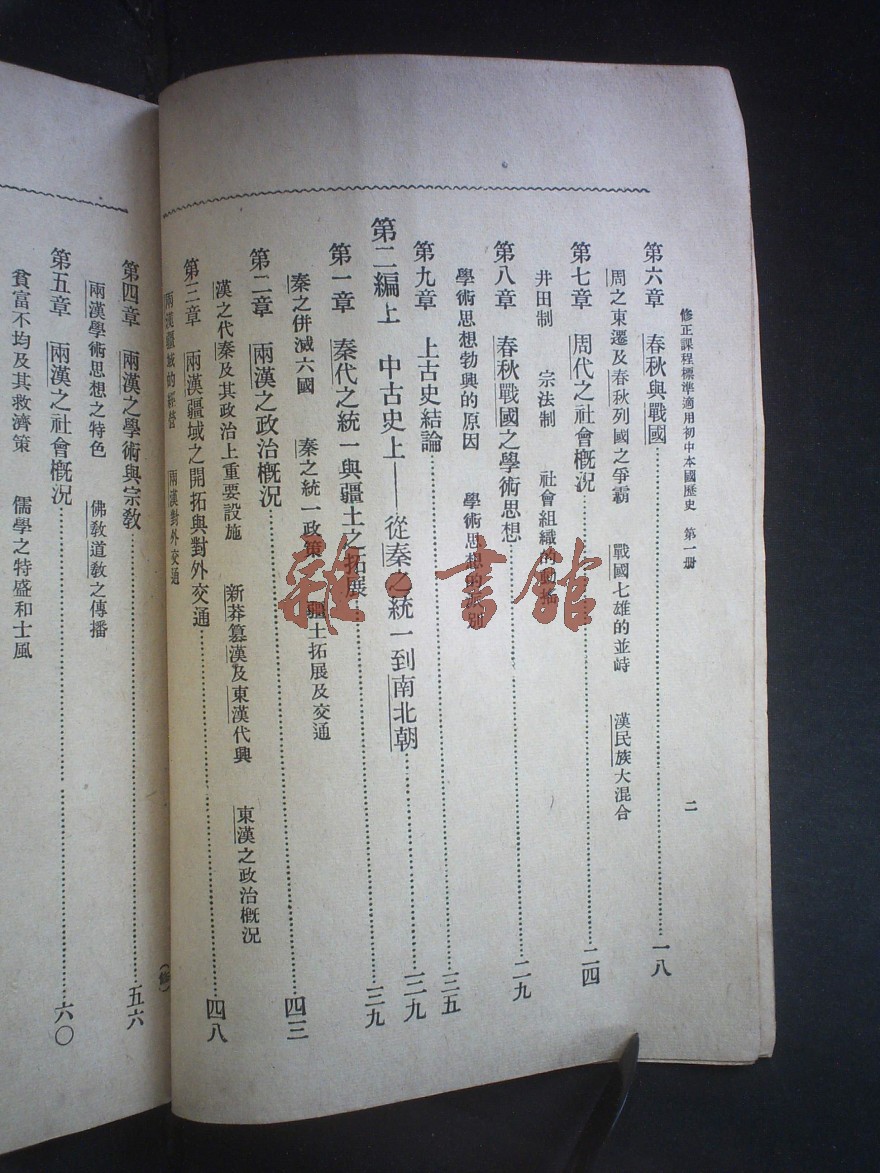 修正課程標準適用初中本國歷史 第一册 二
第六章 春秋與戰國 一八
周之東遷及春秋列國之爭霸 戰國七雄的並峙 漢民族大混合
第七章 周代之社會概況 二四
井田制 宗法制 社會組織的動搖
第八章 春秋戰國之學術思想 二九
學術思想勃興的原因 學術思想的派別
第九章 上古史結論 三五
第二編上 中古史上——從秦之統一到南北朝 三九
第一章 秦代之統一與疆土之拓展 三九
秦之併滅六國 秦之統一政策 疆土拓展及交通
第二章 兩漢之政治概況 四三
漢之代秦及其政治上重要設施 新莽篡漢及東漢代興 東漢之政治概況
第三章 兩漢疆域之開拓與對外交通 四八
兩漢疆域的經營 兩漢對外交通
(修)
第四章 兩漢之學術與宗教 五六
兩漢學術思想之特色 佛教道教之傳播
第五章 兩漢之社會概況 六〇
貧富不均及其救濟策 儒學之特盛和士風
雜·書館